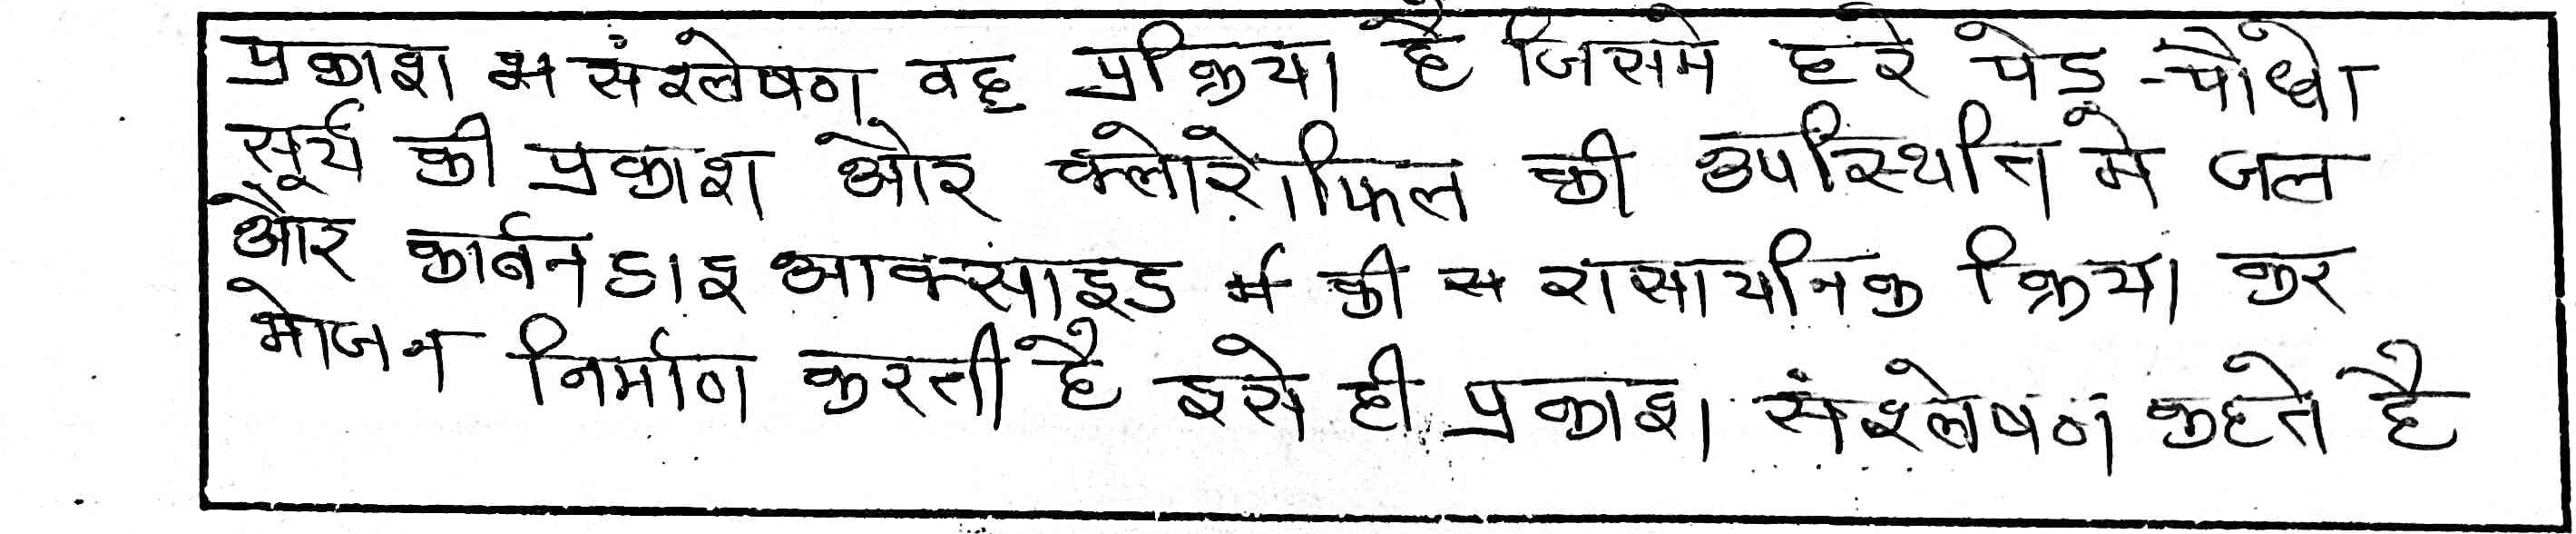 प्रकाश संश्लेषण वह प्रक्रिया है जिसमे हरे पेड़-पौधो
सूर्य की प्रकाश और क्लोरोफिल की उपस्थिति मे जल
और कार्बन डाइ आक्साइड की रासायनिक क्रिया कर
भोजन निर्माण करती है इसे ही प्रकाश संश्लेषण कहते है